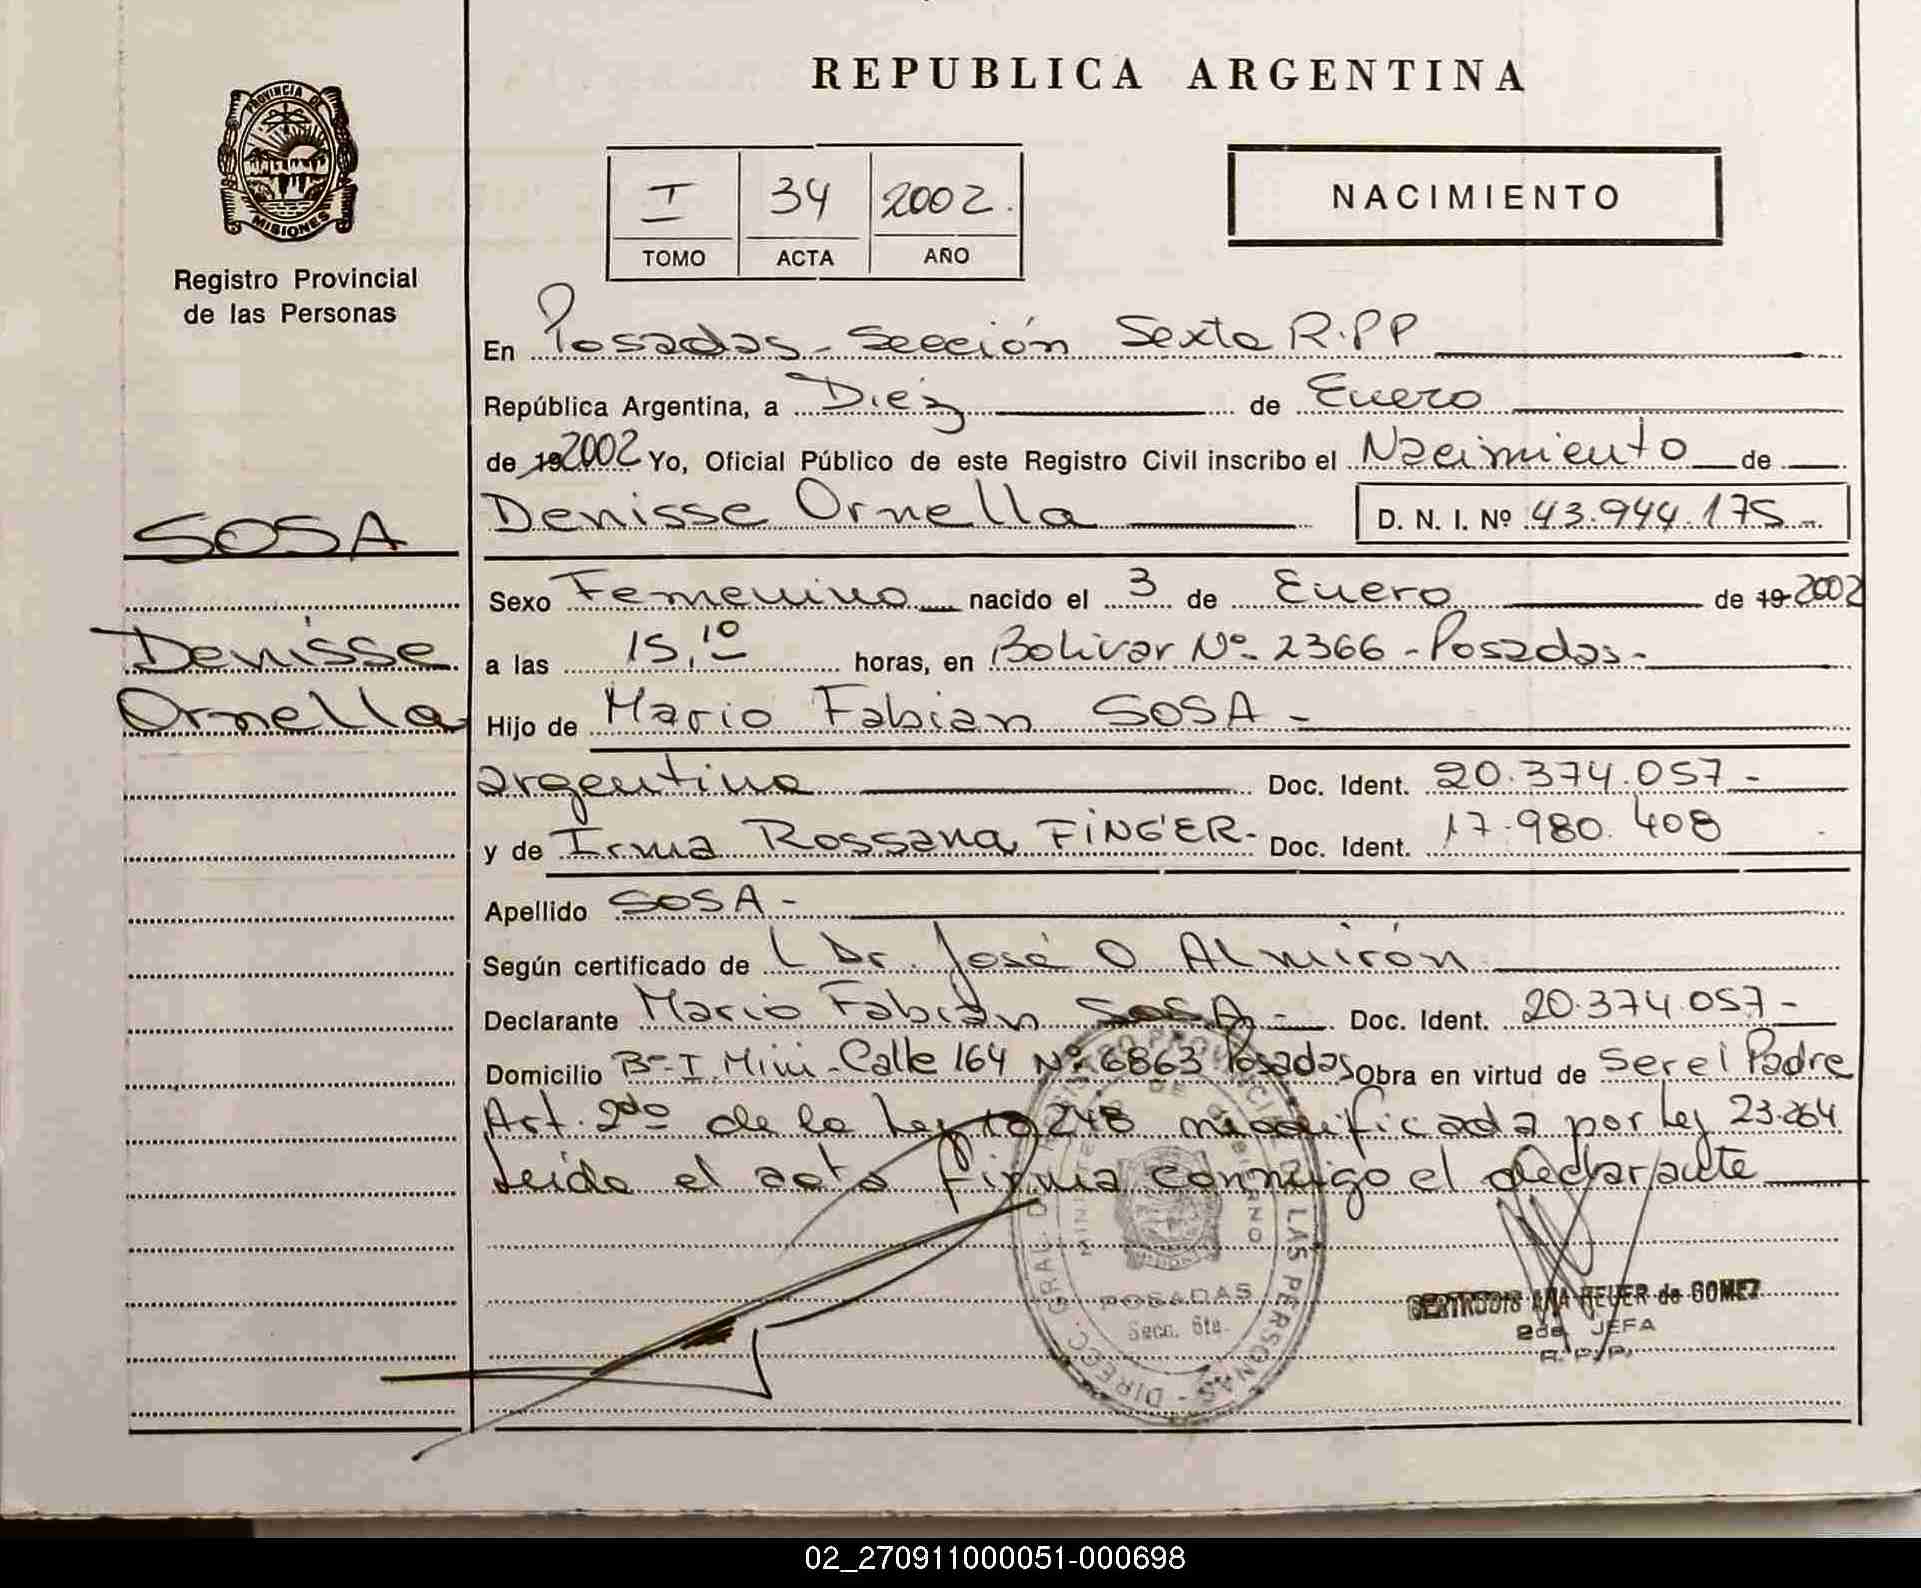 REPUBLICA ARGENTINA
PROVINCIA DE
MISIONES
Registro Provincial
de las Personas
I 34 2002.
TOMO ACTA AÑO
NACIMIENTO
En Posadas - Sección Sexta R.P.P
República Argentina, a Diéz de Enero
de 19 2002 Yo, Oficial Público de este Registro Civil inscribo el Nacimiento de
Denisse Ornella D. N. I. Nº 43.944.175
SOSA
Sexo Femenino nacido el 3 de Enero de 19 2002
Denisse
a las 15,10 horas, en Bolivar Nº 2366 - Posadas -
Ornella
Hijo de Mario Fabian SOSA -
argentino Doc. Ident. 20.374.057 -
y de Irma Rossana FINGER - Doc. Ident. 17.980.408
Apellido SOSA -
Según certificado de Dr. José O Almirón
Declarante Mario Fabián SOSA - Doc. Ident. 20.374.057 -
Domicilio Bº I. Mini - Calle 164 Nº 6863 Posadas Obra en virtud de Ser el Padre
Art. 2do de la Ley 18248 modificada por Ley 23.264
Leída el acta firma conmigo el declarante
DE LAS PERSONAS - DIREC. GRAL.
POSADAS
Secc. 6ta.
GERTRUDIS ANA de GOMEZ
2da. JEFA
R. P. P.
02_270911000051-000698